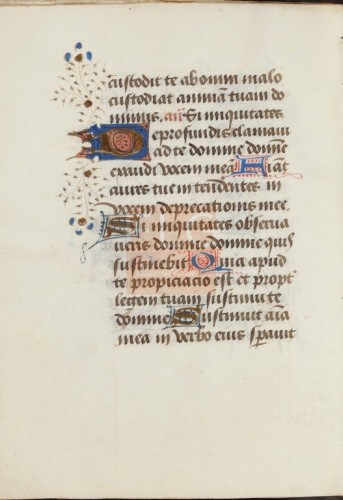 custodit te ab omni malo
custodiat animã tuam do
minus. añ Si iniquitates
De profundis clamaui
ad te domine domine
exaudi vocem mea Fiat
aures tue intendentes in
vocem deprecationis mee.
Si iniquitates obserua
ueris domine domine quis
sustinebit Quia apud
te propiciacio est et propt
legem tuam sustinui te
domine Sustinuit aĩa
mea in verbo eius sperauit